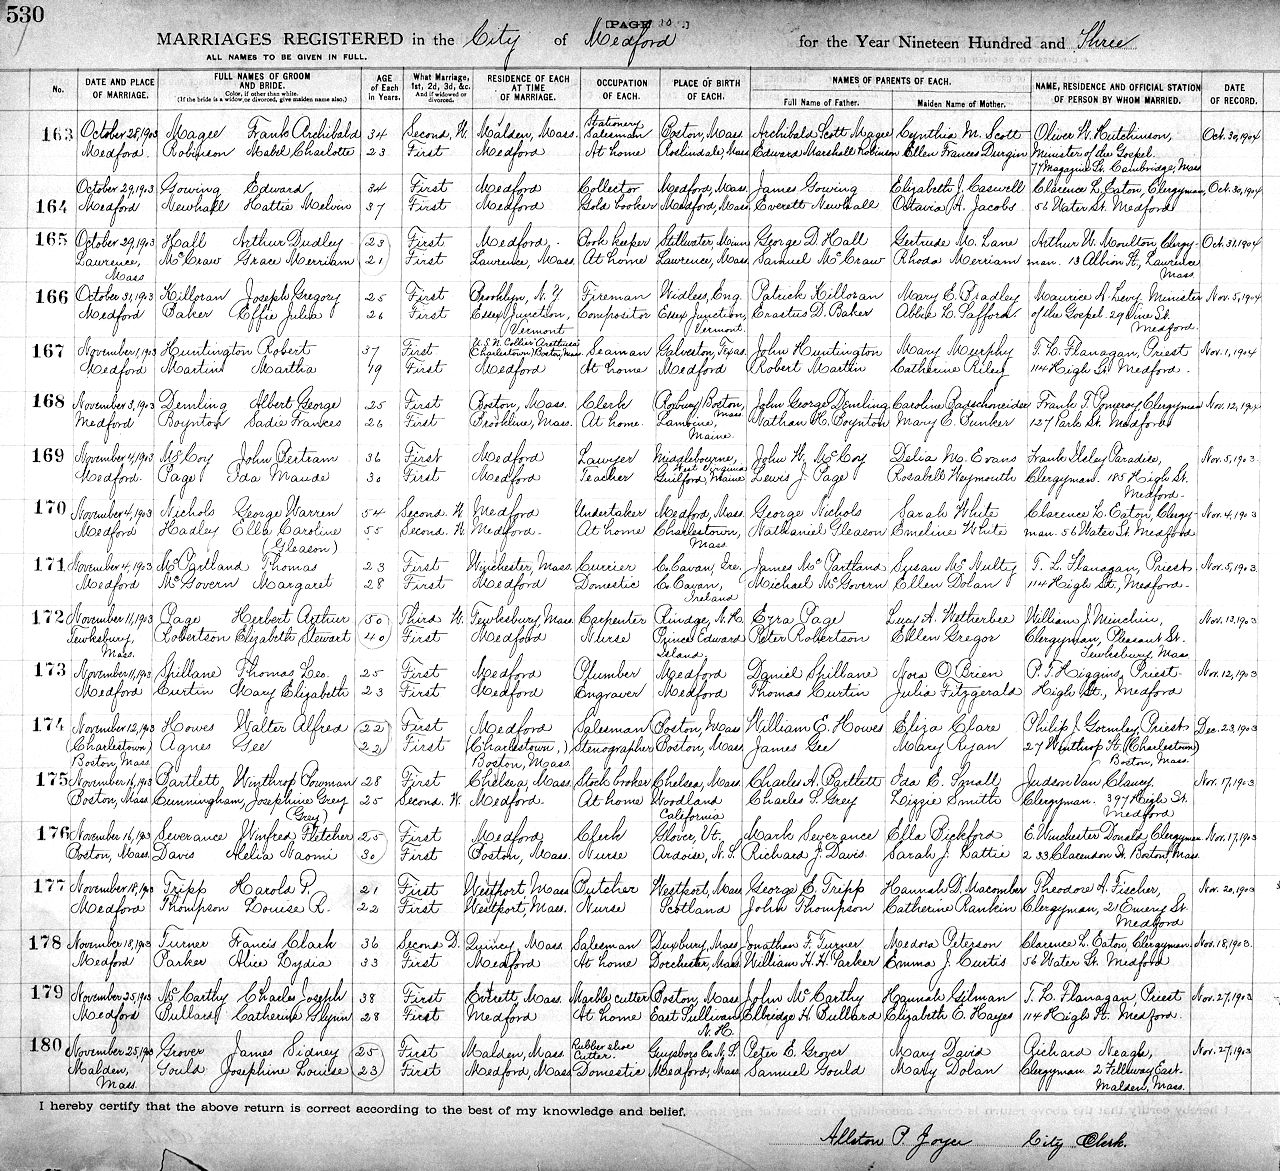 530
[PAGE 10.]
MARRIAGES REGISTERED in the City of Medford for the Year Nineteen Hundred and Three
ALL NAMES TO BE GIVEN IN FULL.
No. DATE AND PLACE OF MARRIAGE. FULL NAMES OF GROOM AND BRIDE. Color, if other than white. (If the bride is a widow, or divorced, give maiden name also.) AGE of Each in Years. What Marriage, 1st, 2d, 3d, &c. And if widowed or divorced. RESIDENCE OF EACH AT TIME OF MARRIAGE. OCCUPATION OF EACH. PLACE OF BIRTH OF EACH. NAMES OF PARENTS OF EACH. Full Name of Father. Maiden Name of Mother. NAME, RESIDENCE AND OFFICIAL STATION OF PERSON BY WHOM MARRIED. DATE OF RECORD.
163 October 28, 1903 Magee Frank Archibald 34 Second, W. Malden, Mass. Stationery Salesman Boston, Mass Archibald Scott Magee Cynthia M. Scott Oliver W. Hutchinson, Oct. 30, 1904
Medford. Robinson Mabel Charlotte 23 First Medford At home Roslindale, Mass Edward Marshall Robinson Ellen Frances Durgin Minister of the Gospel.
77 Magazine St. Cambridge, Mass
164 October 29, 1903 Gowing Edward 34 First Medford Collector Medford, Mass. James Gowing Elizabeth J. Caswell Clarence L. Eaton, Clergyman, Oct. 30, 1904
Medford Newhall Hattie Melvin 37 First Medford Gold booker Medford, Mass. Everett Newhall Octavia A. Jacobs 56 Water St. Medford
165 October 29, 1903 Hall Arthur Dudley 23 First Medford Book keeper Stillwater, Minn George D. Hall Gertrude M. Lane Arthur W. Moulton, Clergy- Oct. 31, 1904
Lawrence, Mass McCraw Grace Merriam 21 First Lawrence, Mass. At home Lawrence, Mass. Samuel McCraw Rhoda Merriam man. 13 Albion St, Lawrence
Mass.
166 October 31, 1903 Killoran Joseph Gregory 25 First Brooklyn, N.Y Fireman Widless, Eng. Patrick Killoran Mary E. Bradley Maurice A. Levy Minister Nov. 5, 1904
Medford Baker Effie Julia 26 First Essex Junction, Vermont Compositor Essex Junction, Vermont. Erastus D. Baker Abbie L. Safford of the Gospel. 29 Vine St.
Medford.
167 November 1, 1903 Huntington Robert 37 First U.S.N. Collier Arethusa Charlestown, Boston, Mass. Seaman Galveston, Texas. John Huntington Mary Murphy T. L. Flanagan, Priest Nov. 1, 1904
Medford Martin Martha 19 First Medford At home Medford Robert Martin Catherine Riley 114 High St. Medford.
168 November 3, 1903 Demling Albert George 25 First Boston, Mass. Clerk Roxbury, Boston, Mass John George Demling Caroline Badschoneider Frank T. Pomeroy, Clergyman Nov. 12, 1904
Medford Boynton Sadie Frances 26 First Brookline, Mass. At home. Lamoine, Maine. Nathan H. Boynton Mary E. Bunker 127 Park St. Medford
169 November 4, 1903 McCoy John Bertram 36 First Medford Lawyer Middlebourne, West Virginia John W. McCoy Delia M. Evans Frank Ilsley Paradise, Nov. 5, 1903
Medford. Page Ida Maude 30 First Medford Teacher Guilford, Maine Lewis J. Page Rosabell Weymouth Clergyman. 185 High St.
Medford.
170 November 4, 1903 Nichols George Warren 54 Second. W Medford Undertaker Medford, Mass. George Nichols Sarah White Clarence L. Eaton, Clergy- Nov. 4, 1903
Medford Hadley Ella Caroline (Gleason) 55 Second. W. Medford. At home Charlestown, Mass. Nathaniel Gleason Emeline White man. 56 Water St. Medford
171 November 4, 1903 McPartland Thomas 23 First Winchester, Mass. Currier C. Cavan, Ire. James McPartland Susan McNulty T. L. Flanagan, Priest Nov. 5, 1903
Medford McGovern Margaret 28 First Medford Domestic C. Cavan, Ireland Michael McGovern Ellen Dolan 114 High St, Medford.
172 November 11, 1903 Page Herbert Arthur 50 Third W. Tewksbury, Mass. Carpenter Rindge, N.H. Ezra Page Lucy A. Wetherbee William J. Minchin, Nov. 13, 1903
Tewksbury, Mass. Robertson Elizabeth Stewart 40 First Medford Nurse Prince Edward Island. Peter Robertson Ellen Gregor Clergyman, Pleasant St.
Tewksbury, Mass
173 November 11, 1903 Spillane Thomas Leo. 25 First Medford Plumber Medford Daniel Spillane Nora O'Brien P. F. Higgins, Priest Nov. 12, 1903
Medford Curtin Mary Elizabeth 23 First Medford Engraver Medford Thomas Curtin Julia Fitzgerald High St., Medford
174 November 12, 1903 Howes Walter Alfred 22 First Medford Salesman Boston, Mass William E. Howes Eliza Clare Philip J. Gormley, Priest Dec. 23, 1903
(Charlestown) Boston, Mass. Agnes Gee 22 First (Charlestown,) Boston, Mass. Stenographer Boston, Mass. James Gee Mary Ryan 27 Winthrop St, (Charlestown)
Boston, Mass.
175 November 16, 1903 Bartlett Winthrop Bowman 28 First Chelsea, Mass. Stock broker Chelsea, Mass. Charles A. Bartlett Ida E. Small Judson Van Clancy Nov. 17, 1903
Boston, Mass Cunningham, Josephine Grey (Grey) 25 Second. W. Medford. At home Woodland California Charles S. Grey Lizzie Smith Clergyman. 397 High St.
Medford
176 November 16, 1903 Severance Winfred Fletcher 25 First Medford Clerk Glover, Vt. Mark Severance Ella Bickford E. Winchester Donald, Clergyman Nov. 17, 1903
Boston, Mass. Davis Alelia Naomi 30 First Boston, Mass. Nurse Ardoise, N.S. Richard J. Davis Sarah J. Lattie 233 Clarendon St. Boston, Mass.
177 November 18, 1903 Tripp Harold P. 21 First Westport Mass Butcher Westport, Mass George E. Tripp Hannah D. Macomber Theodore A. Fischer, Nov. 20, 1903
Medford Thompson Louise R. 22 First Westport, Mass. Nurse Scotland John Thompson Catherine Rankin Clergyman, 21 Emery St.
Medford
178 November 18, 1903 Turner Francis Clark 36 Second D. Quincy, Mass. Salesman Duxbury, Mass Jonathan F. Turner Medora Peterson Clarence L. Eaton, Clergyman. Nov. 18, 1903.
Medford Parker Alice Lydia 33 First Medford At home Dorchester, Mass William H. H. Parker Emma J. Curtis 56 Water St. Medford
179 November 25, 1903 McCarthy Charles Joseph 38 First Everett, Mass. Marble cutter Boston, Mass John McCarthy Hannah Gilman T. L. Flanagan, Priest Nov. 27, 1903
Medford Bullard Catherine Glynn 28 First Medford At home East Sullivan, N.H. Elbridge H. Bullard Elizabeth C. Hayes 114 High St. Medford.
180 November 25, 1903 Grover James Sidney 25 First Malden, Mass. Rubber shoe Cutter. Guysboro Co. N.S. Peter E. Grover Mary David Richard Neagle, Nov. 27, 1903
Malden, Mass. Gould Josephine Louise 23 First Medford, Mass Domestic Medford, Mass Samuel Gould Mary Dolan Clergyman 2 Fellsway East.
Malden, Mass.
I hereby certify that the above return is correct according to the best of my knowledge and belief.
Allston P. Joyce City Clerk.